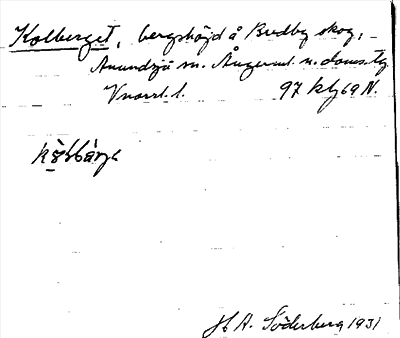 Kolberget, bergshöjd å Bredby skog,
Anundsjö sn. Ångerml. n. doms. tg
Vnorrl. l. 97 kbj 69 N.
H A. Söderberg 1931